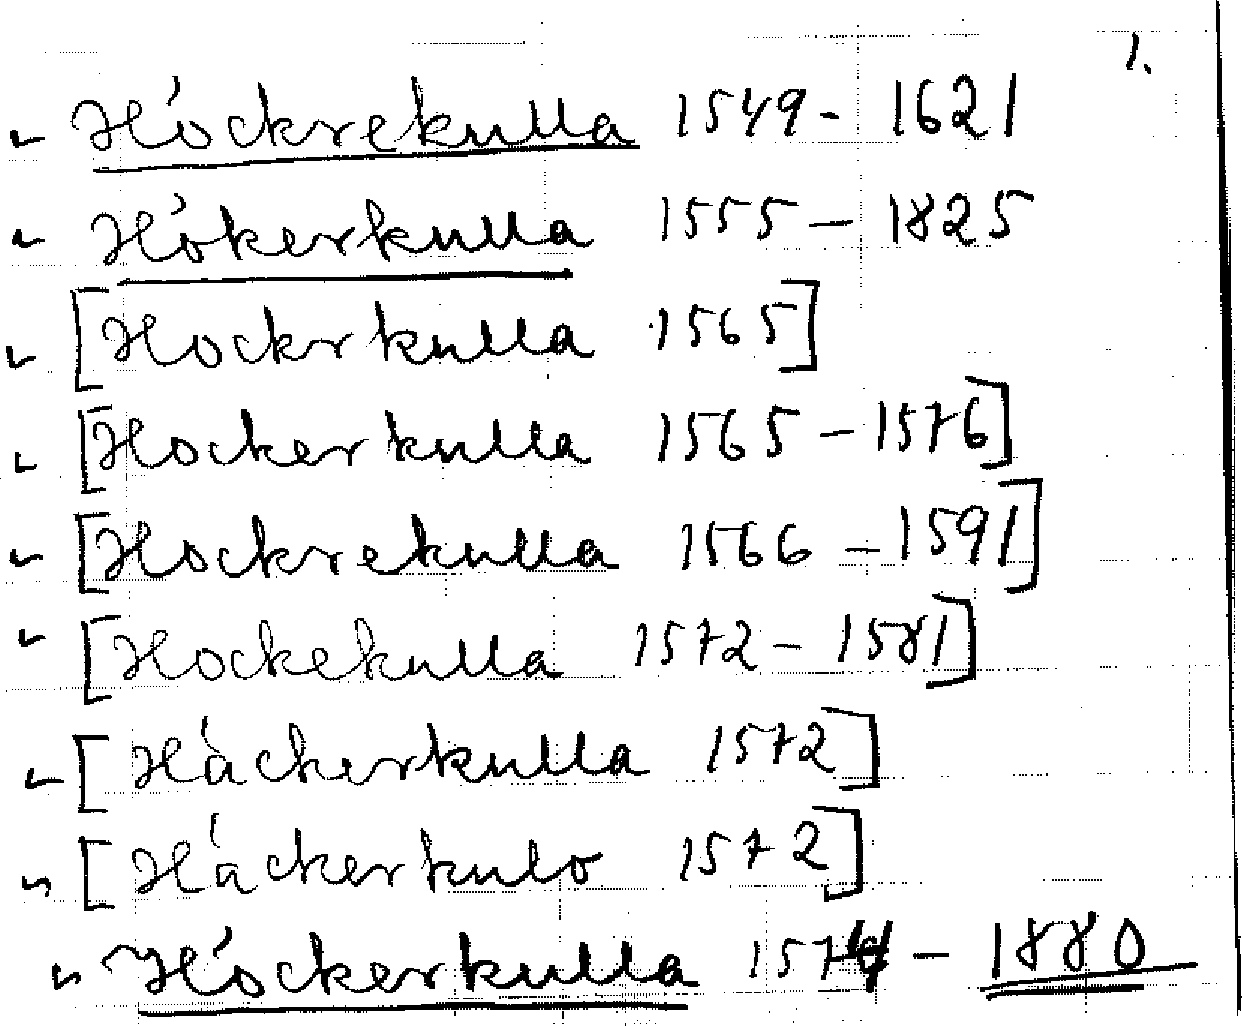 1.
Höckrekulla 1549 - 1621
Hökerkulla 1555 - 1825
[Hockrkulla 1565]
[Hockerkulla 1565 - 1576]
[Hockrekulla 1566 - 1591]
[Hockekulla 1572 - 1581]
[Häckerkulla 1572]
[Häckerkulo 1572]
Höckerkulla 1574 - 1880